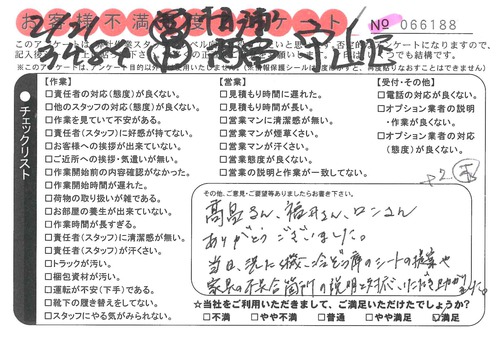 お客様不満足度アンケート
No 066188
※このアンケートは、アンケート目的以外には使用いたしません。
チェックリスト
【作業】
□責任者の対応(態度)が良くない。
□他のスタッフの対応(態度)が良くない。
□作業を見ていて不安がある。
□責任者(スタッフ)に好感が持てない。
□お客様への挨拶が出来ていない。
□ご近所への挨拶・気遣いが無い。
□作業開始前の内容確認がなかった。
□作業開始時間が遅れた。
□荷物の取り扱いが雑である。
□お部屋の養生が出来ていない。
□作業時間が長すぎる。
□責任者(スタッフ)に清潔感が無い。
□責任者(スタッフ)が汗くさい。
□トラックが汚い。
□梱包資材が汚い。
□運転が不安(下手)である。
□靴下の履き替えをしてない。
□スタッフにやる気がみられない。
【営業】
□見積もり時間に遅れた。
□見積もり時間が長い。
□営業マンに清潔感が無い。
□営業マンが煙草くさい。
□営業マンが汗くさい。
□営業態度が良くない。
□営業の説明と作業が一致してない。
【受付・その他】
□電話の対応が良くない。
□オプション業者の説明
・作業が良くない。
□オプション業者の対応
(態度)が良くない。
その他、ご意見・ご要望等ありましたらお書き下さい。
高畠さん、福井さん、ロンさん
ありがとうございました。
当日、
のシートの提案や
家具の不具合箇所の説明と対応いただき助かりました。
☆当社をご利用いただきまして、ご満足いただけたでしょうか?
□不満 □やや不満 □普通 □やや満足 ☑満足